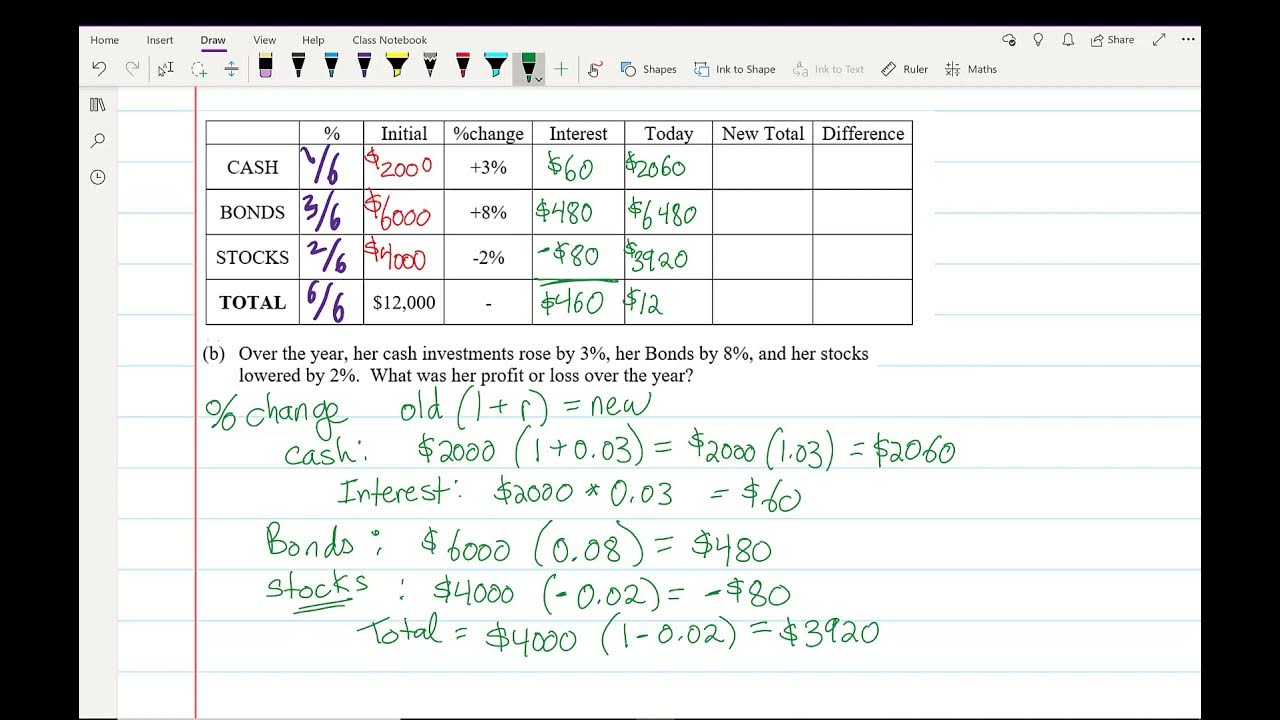 Home Insert Draw View Help Class Notebook Share
Shapes Ink to Shape Ink to Text Ruler Maths
% Initial %change Interest Today New Total Difference
CASH /6 $2000 +3% $60 $2060
BONDS 3/6 $6000 +8% $480 $6480
STOCKS 2/6 $4000 -2% -$80 $3920
TOTAL 6/6 $12,000 - $460 $12
(b) Over the year, her cash investments rose by 3%, her Bonds by 8%, and her stocks
lowered by 2%. What was her profit or loss over the year?
% change old (1 + r) = new
cash: $2000 (1+0.03) = $2000 (1.03) = $2060
Interest: $2000 * 0.03 = $60
Bonds: $6000 (0.08) = $480
Stocks: $4000 (-0.02) = -$80
Total = $4000 (1-0.02) = $3920